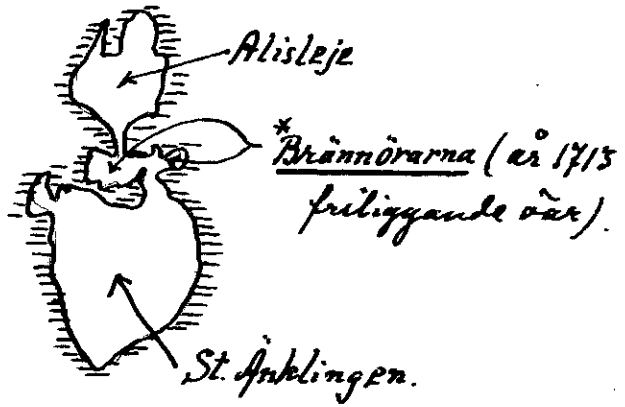 Alisleje
*
Brännörarna (år 1713
friliggande öar).
St. Änklingen.